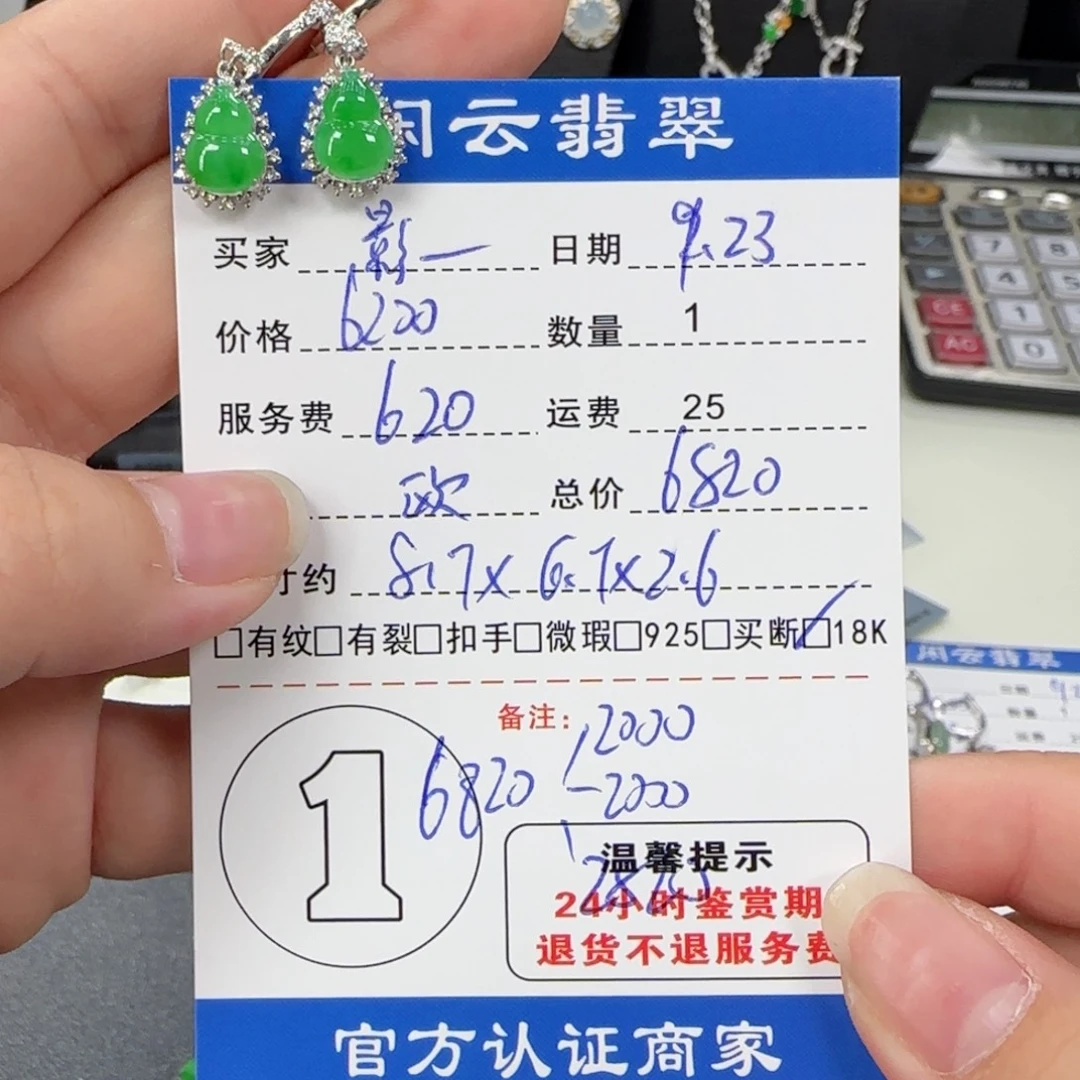 闲云翡翠
买家 影一 日期 9.23
价格 6200 数量 1
服务费 620 运费 25
欧 总价 6820
寸约 8.7x6.7x2.6
□有纹□有裂□扣手□微瑕□925□买断□18K
备注: 2000
1 6820 -2000
温馨提示
24小时鉴赏期
退货不退服务费
官方认证商家
7 8
4 5
CE 1
AC 0
闲云翡翠